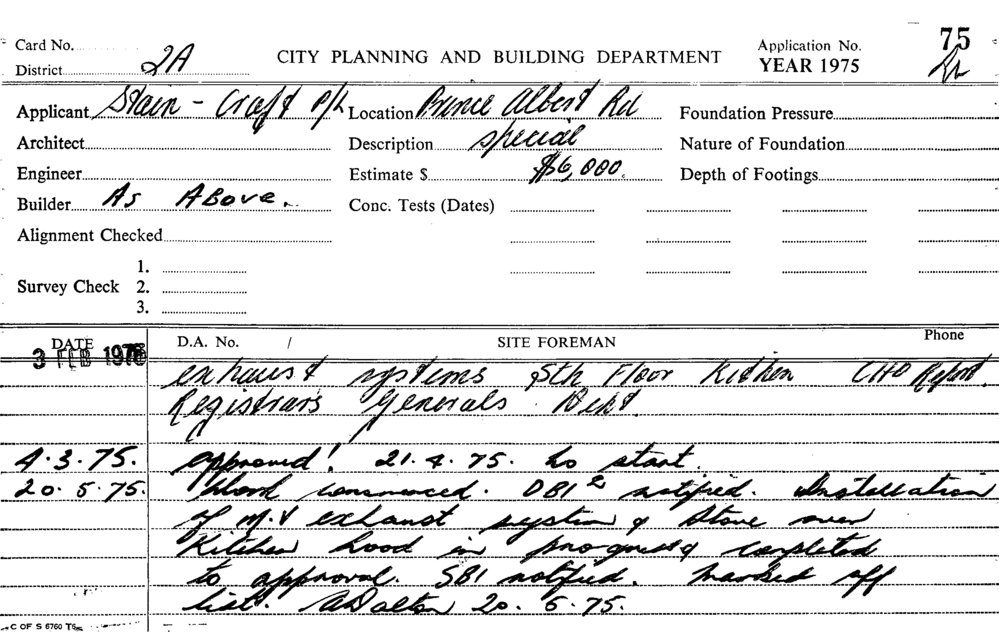 Card No. CITY PLANNING AND BUILDING DEPARTMENT Application No. 75
District 2A YEAR 1975
Applicant Stain - Craft P/L Location Prince Albert Rd Foundation Pressure
Architect Description special Nature of Foundation
Engineer Estimate $ $6,000. Depth of Footings
Builder As Above. Conc. Tests (Dates)
Alignment Checked
1.
Survey Check 2.
3.
DATE D.A. No. / SITE FOREMAN Phone
3 FEB 1975
exhaust systems 5th Floor Kitchen CHO Report
Registrars Generals Dept.
4.3.75. approved! 21.4.75. to start.
20.5.75. commenced. DBI notified. Installation
of M.V exhaust system & stove over
Kitchen hood in progress & completed
to approval. SBI notified. Marked off
list. ADalton 20.5.75.
C OF S 6760